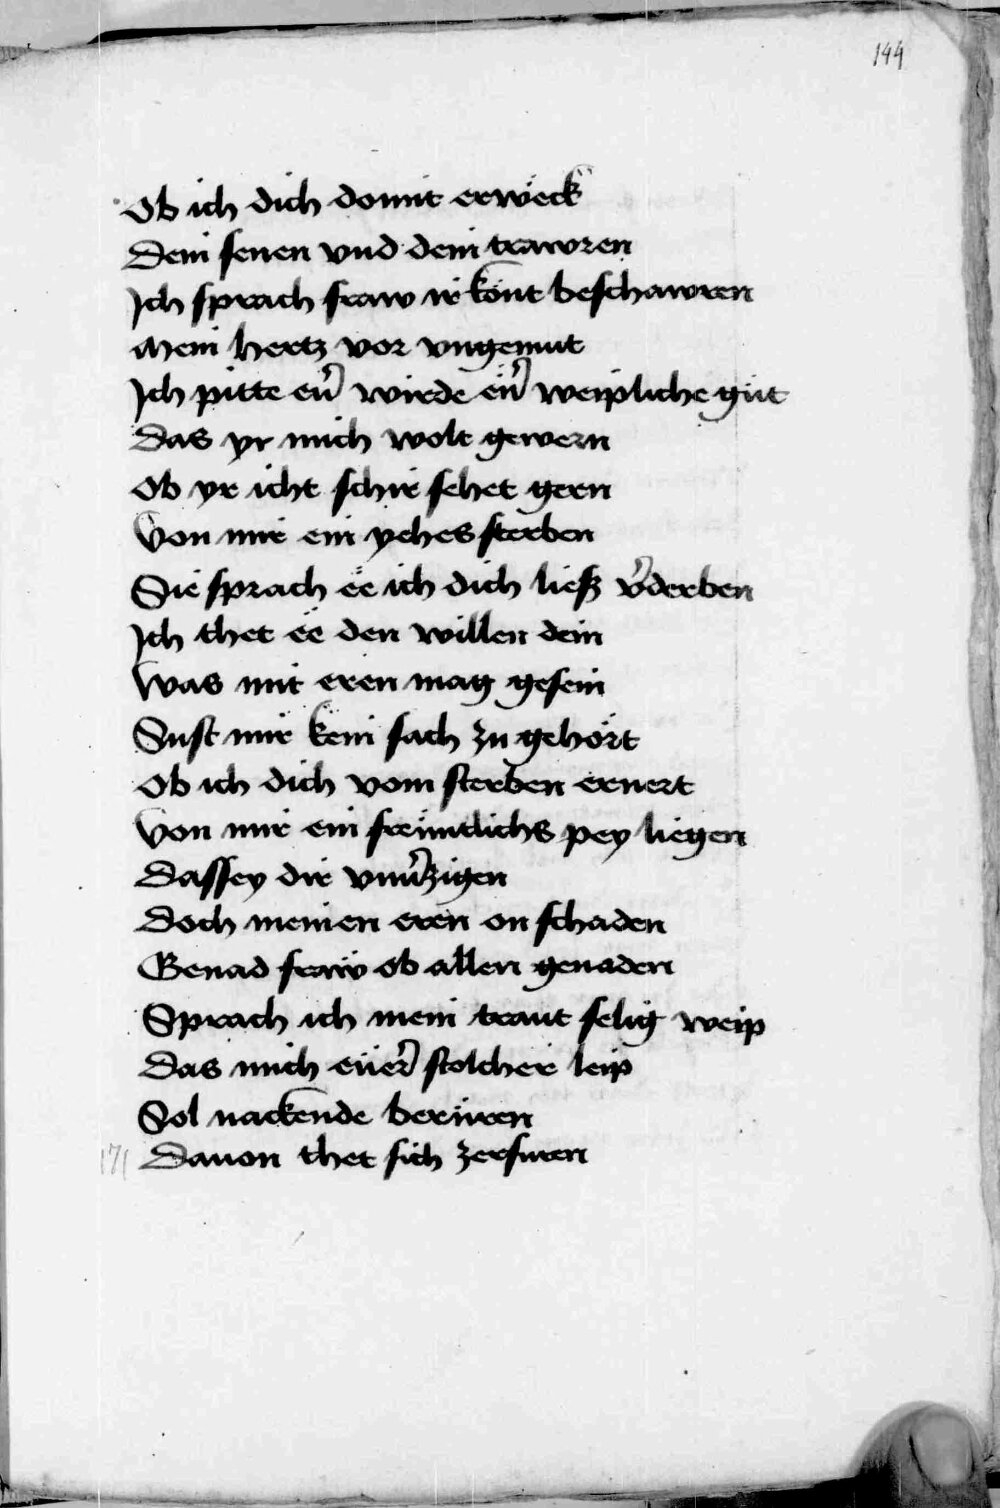 144
Ob ich dich domit erweck
Dein senen vnd dein trawren
Ich sprach fraw ir könt beschawren
Mein hertz vor vngemut
Ich pitte eur̃ wirde eür̃ weipliche güt
Das yr mich wolt gewern
Ob yr icht schir sehet gern
Von mir ein yehes sterben
Sie sprach ee ich dich liesz ṽderben
Ich thet ee den willen dein
Was mit eren mag gesein
Sust mir kein sach zu gehört
Ob ich dich vom sterben ernert
Von mir ein freüntlichs pey liegen
Das sey dir vnũzigen
Doch meinen eren on schaden
Genad fraw ob allen genaden
Sprach ich mein traut selig weip
Das mich eüer̃ stolcher leip
Sol nackende berüren
171 Dauon thet sich zerfuren